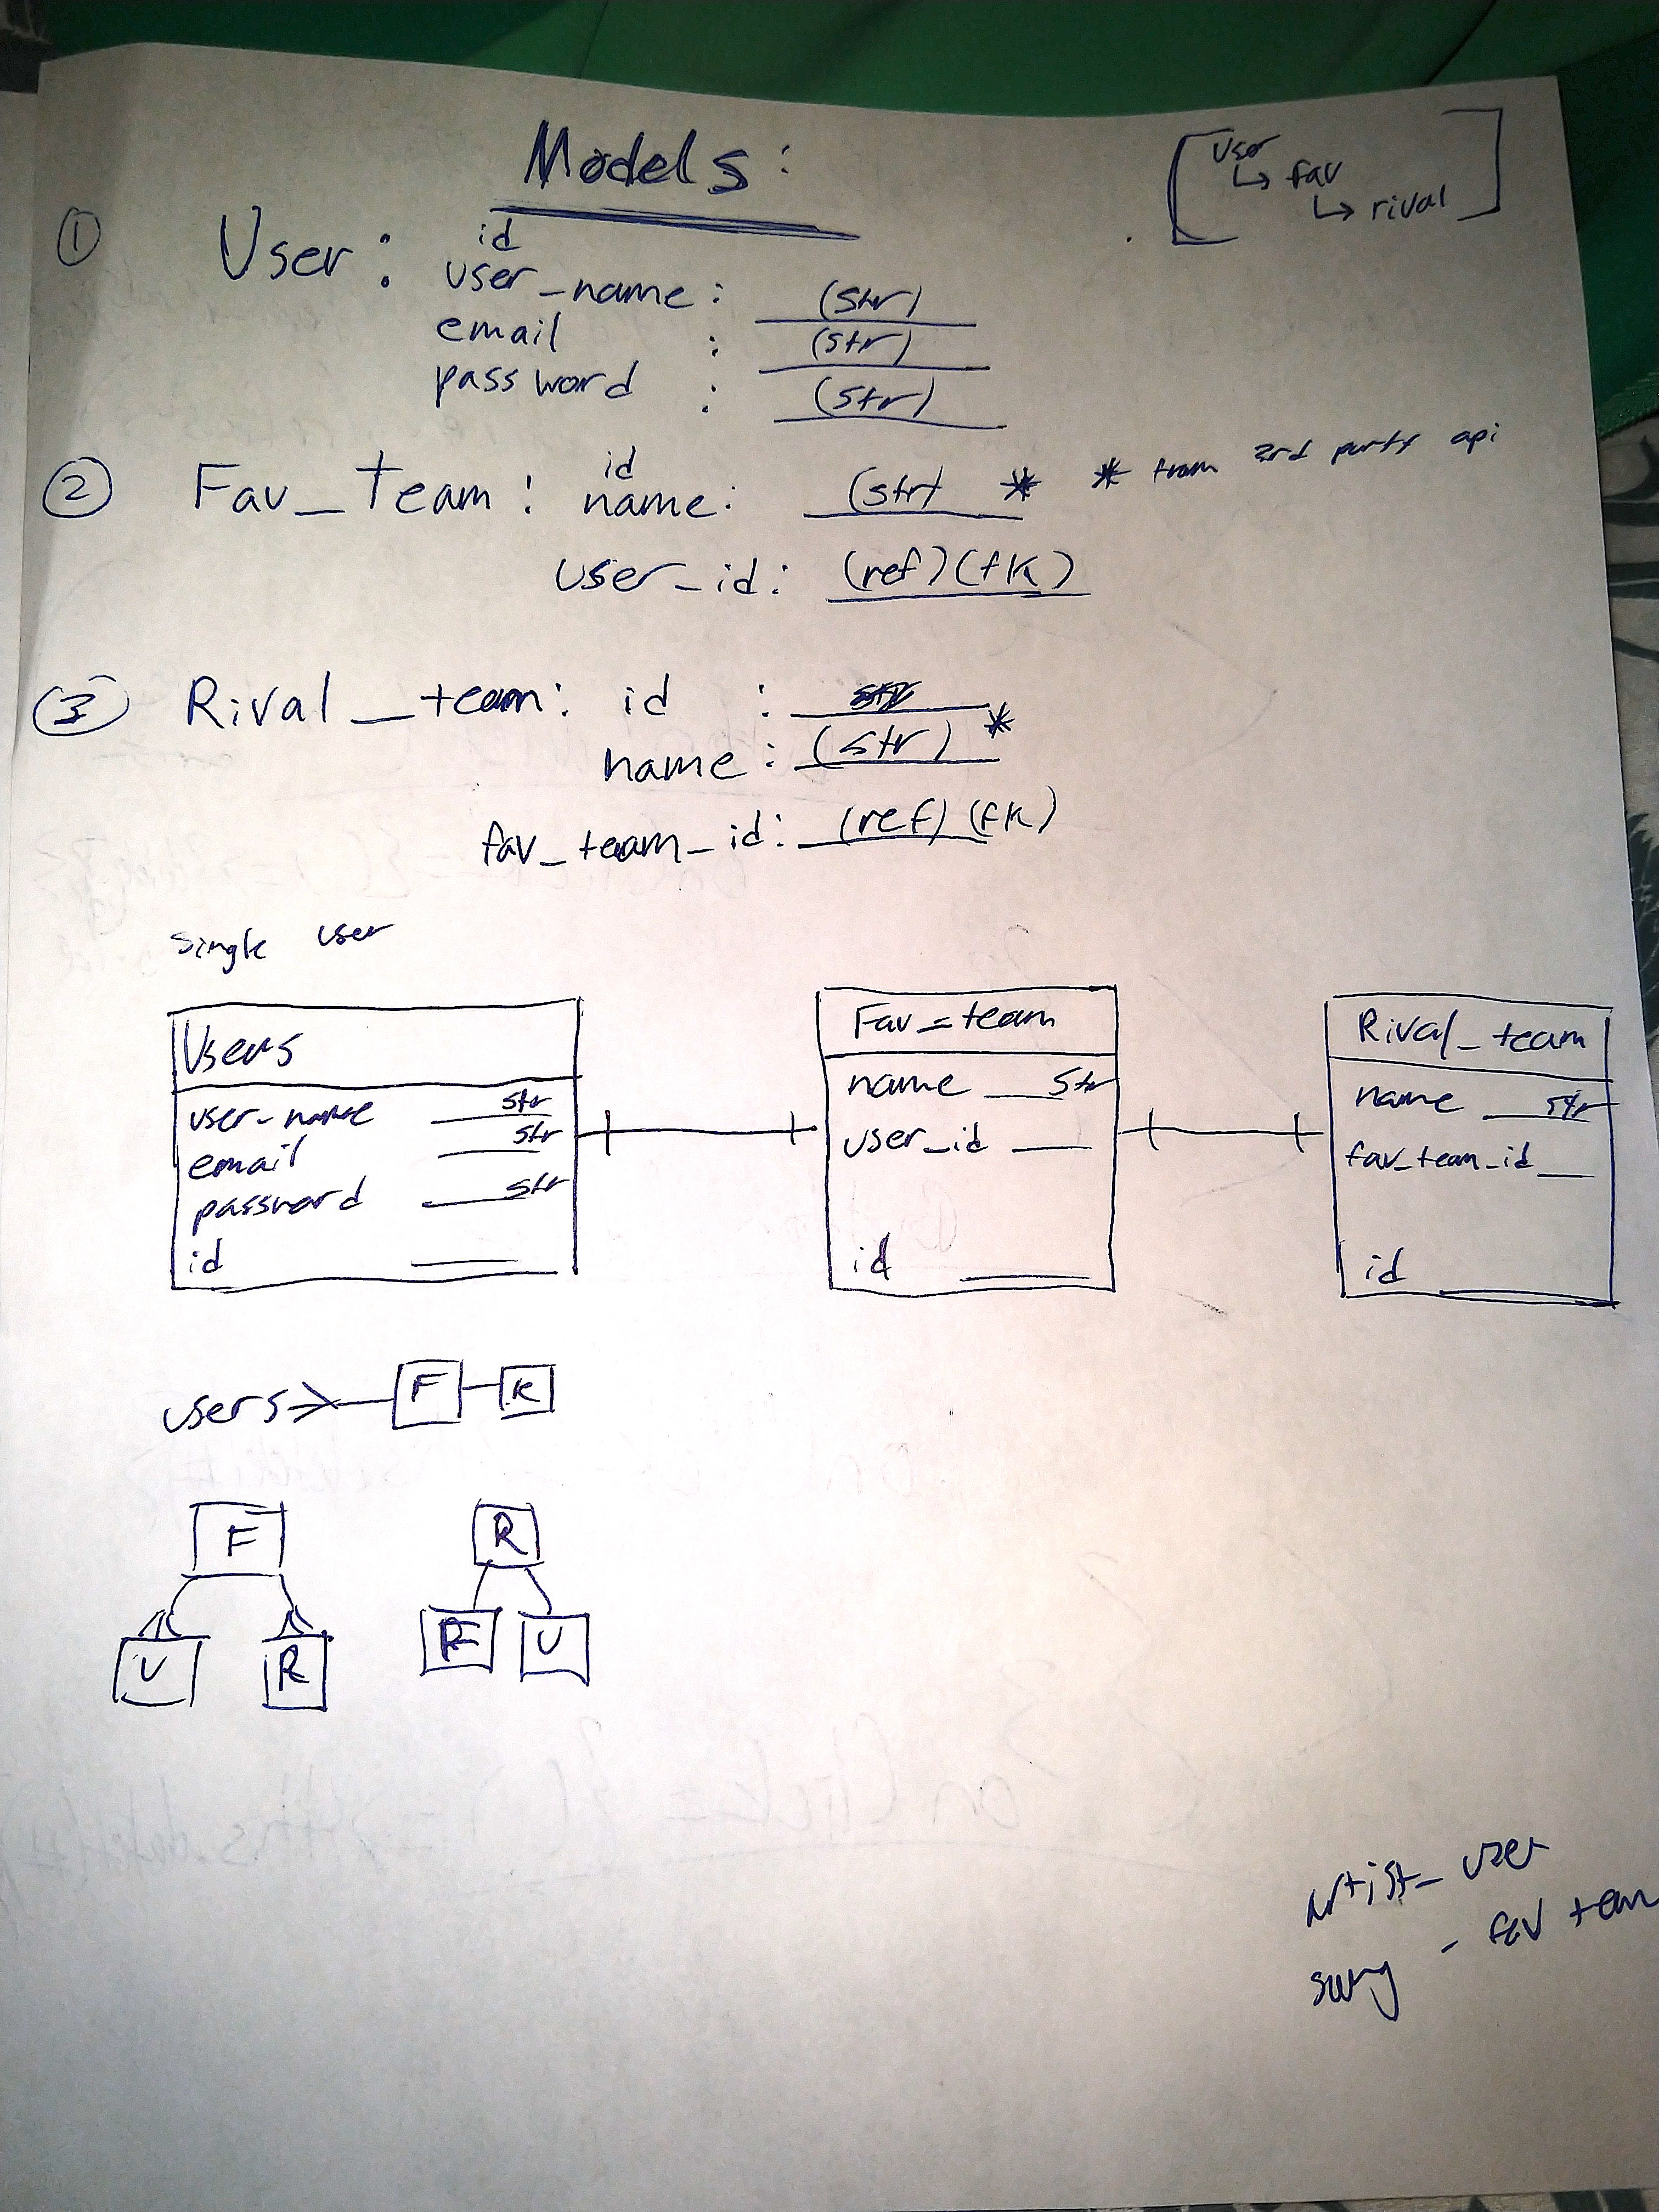 Models:
[ User
↳ fav
↳ rival ]
① User: id
user_name: (str)
email : (str)
password : (str)
② Fav_team: id
name: (str) * * from 3rd party api
user_id: (ref)(fk)
③ Rival_team: id :
name: (str) *
fav_team_id: (ref)(fk)
Single user
Users
user-name str
email str
password str
id
Fav_team
name str
user_id
id
Rival_team
name str
fav_team_id
id
users F R
F
U R
R
F U
artist_user
song - fav team